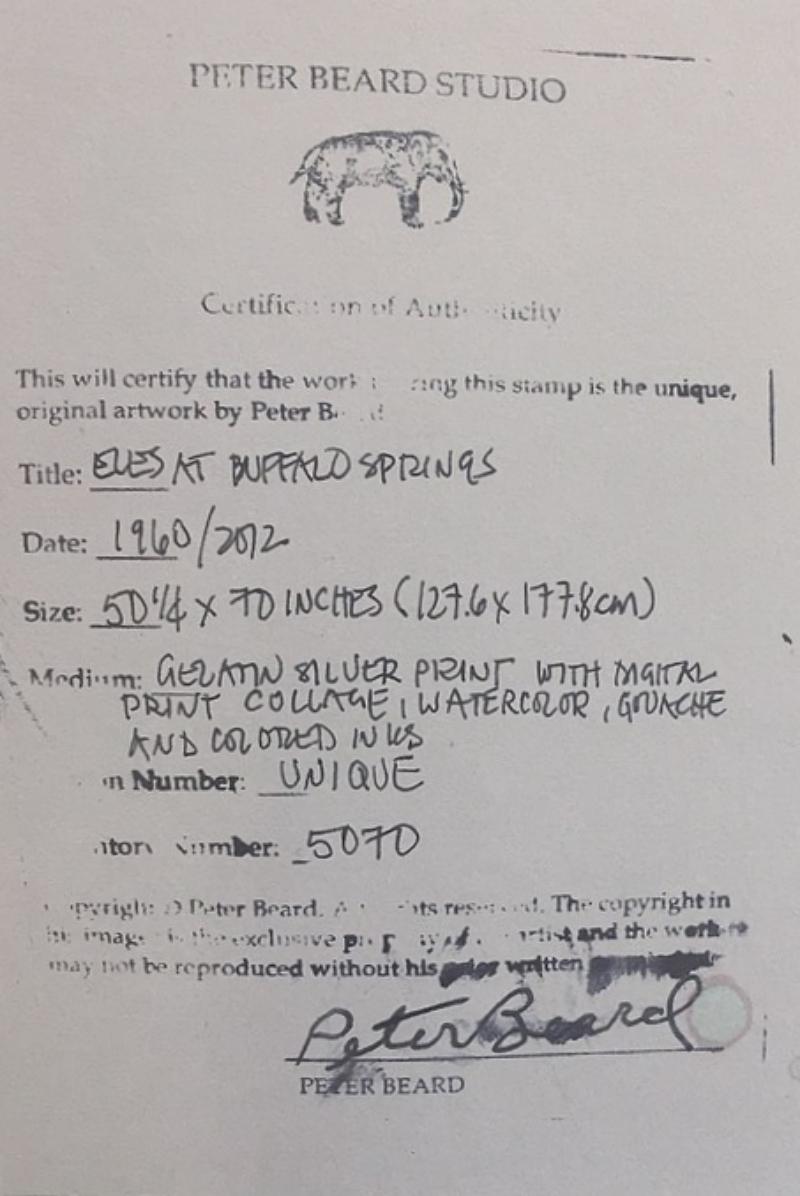 PETER BEARD STUDIO
of
This will certify that the this stamp is the unique,
original artwork by Peter
Title: ELES AT BUFFALO SPRINGS
Date: 1960/2012
Size: 50 1/4 X 70 INCHES (127.6 X 177.8 cm)
Medium: GELATIN SILVER PRINT WITH DIGITAL
PRINT COLLAGE, WATERCOLOR, GOUACHE
AND COLORED INKS
Number: UNIQUE
Number: 5070
Peter Beard. The copyright in
the exclusive and the work
may not be reproduced without his written
Peter Beard
PETER BEARD